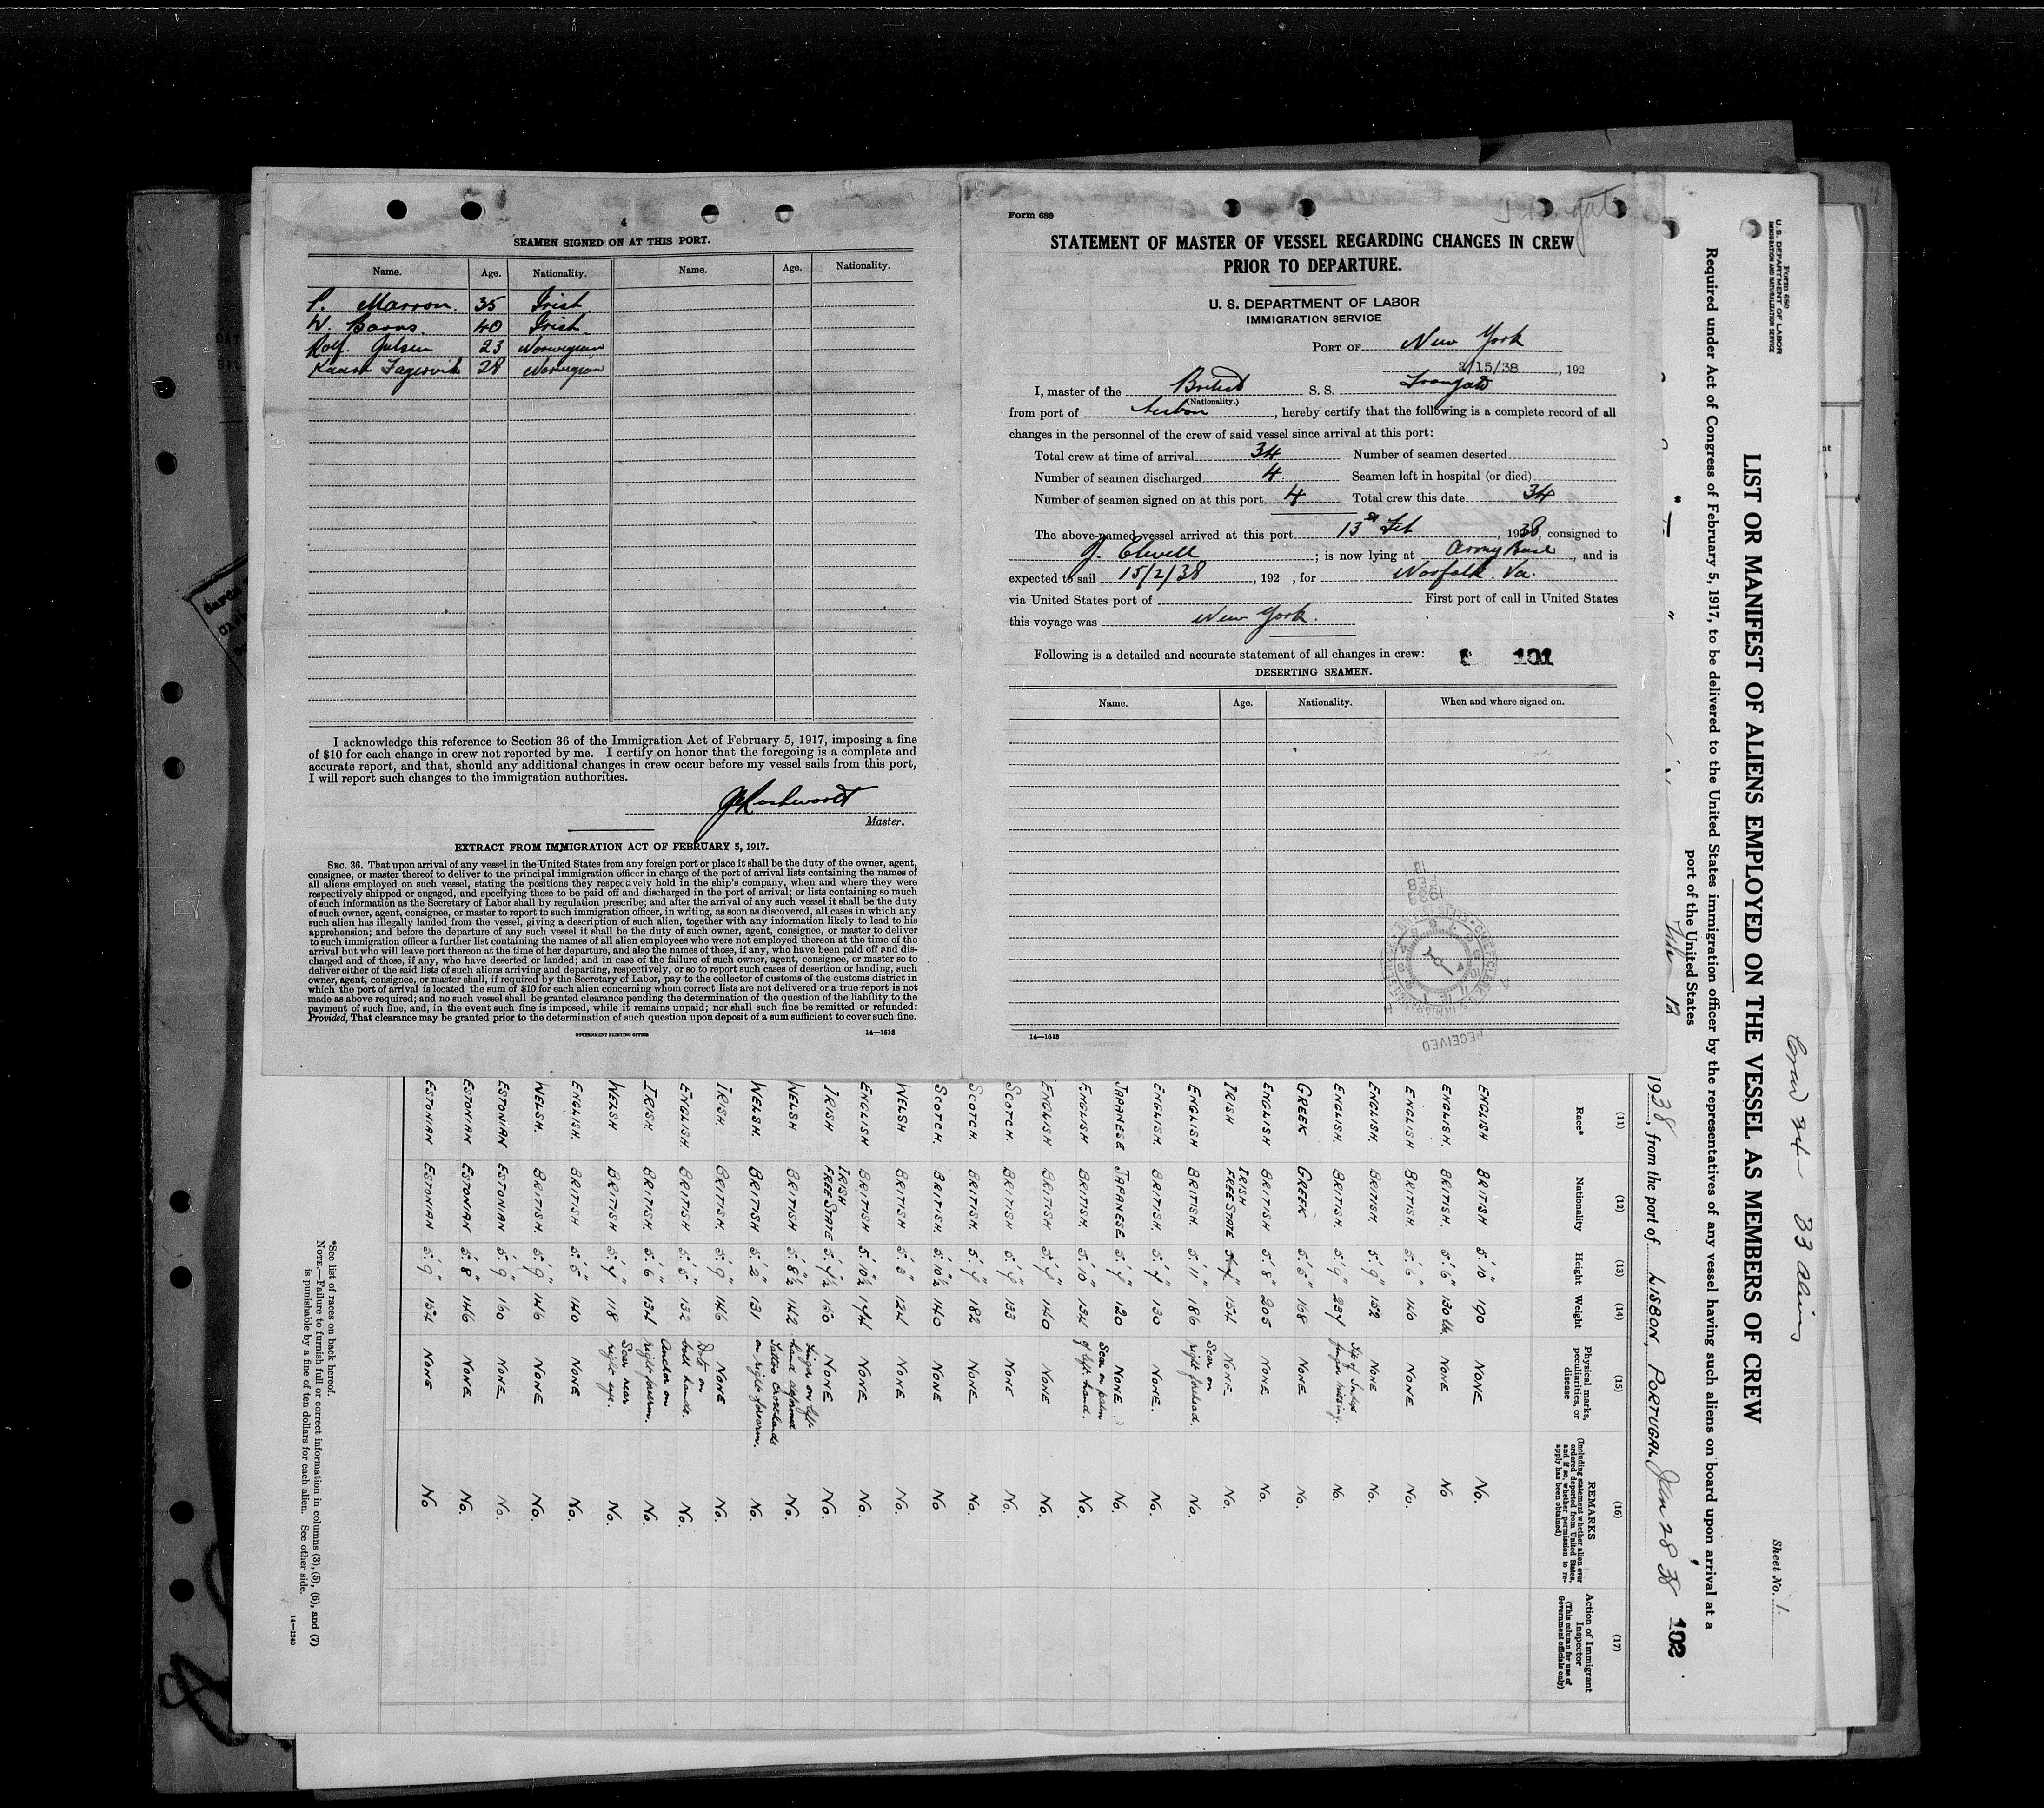 4
SEAMEN SIGNED ON AT THIS PORT.
Name. Age. Nationality. Name. Age. Nationality.
P. Marron. 35 Irish
W. 40 Irish
Rolf 23 Norwegian
28 Norwegian
I acknowledge this reference to Section 36 of the Immigration Act of February 5, 1917, imposing a fine
of $10 for each change in crew not reported by me. I certify on honor that the foregoing is a complete and
accurate report, and that, should any additional changes in crew occur before my vessel sails from this port,
I will report such changes to the immigration authorities.
Master.
EXTRACT FROM IMMIGRATION ACT OF FEBRUARY 5, 1917.
SEC. 36. That upon arrival of any vessel in the United States from any foreign port or place it shall be the duty of the owner, agent,
consignee, or master thereof to deliver to the principal immigration officer in charge of the port of arrival lists containing the names of
all aliens employed on such vessel, stating the positions they respectively hold in the ship's company, when and where they were
respectively shipped or engaged, and specifying those to be paid off and discharged in the port of arrival; or lists containing so much
of such information as the Secretary of Labor shall by regulation prescribe; and after the arrival of any such vessel it shall be the duty
of such owner, agent, consignee, or master to report to such immigration officer, in writing, as soon as discovered, all cases in which any
such alien has illegally landed from the vessel, giving a description of such alien, together with any information likely to lead to his
apprehension; and before the departure of any such vessel it shall be the duty of such owner, agent, consignee, or master to deliver
to such immigration officer a further list containing the names of all alien employees who were not employed thereon at the time of the
arrival but who will leave port thereon at the time of her departure, and also the names of those, if any, who have been paid off and dis-
charged and of those, if any, who have deserted or landed; and in case of the failure of such owner, agent, consignee, or master so to
deliver either of the said lists of such aliens arriving and departing, respectively, or so to report such cases of desertion or landing, such
owner, agent, consignee, or master shall, if required by the Secretary of Labor, pay to the collector of customs of the customs district in
which the port of arrival is located the sum of $10 for each alien concerning whom correct lists are not delivered or a true report is not
made as above required; and no such vessel shall be granted clearance pending the determination of the question of the liability to the
payment of such fine, and, in the event such fine is imposed, while it remains unpaid; nor shall such fine be remitted or refunded:
Provided, That clearance may be granted prior to the determination of such question upon deposit of a sum sufficient to cover such fine.
GOVERNMENT PRINTING OFFICE 14—1618
Form 689
STATEMENT OF MASTER OF VESSEL REGARDING CHANGES IN CREW
PRIOR TO DEPARTURE.
U. S. DEPARTMENT OF LABOR
IMMIGRATION SERVICE
PORT OF New York
2/15/38, 192
I, master of the British S. S.
(Nationality.)
from port of Lisbon, hereby certify that the following is a complete record of all
changes in the personnel of the crew of said vessel since arrival at this port:
Total crew at time of arrival 34 Number of seamen deserted
Number of seamen discharged 4 Seamen left in hospital (or died)
Number of seamen signed on at this port 4 Total crew this date 34
The above-named vessel arrived at this port 13th Feb, 1938, consigned to
J. Elwell; is now lying at Army Base, and is
expected to sail 15/2/38, 192 , for Norfolk. Va.
via United States port of First port of call in United States
this voyage was New York.
Following is a detailed and accurate statement of all changes in crew: 101
DESERTING SEAMEN.
Name. Age. Nationality. When and where signed on.
14—1618
RECEIVED
Form 680
U. S. DEPARTMENT OF LABOR
IMMIGRATION AND NATURALIZATION SERVICE
Crew 34 - 33 aliens
Sheet No. 1.
LIST OR MANIFEST OF ALIENS EMPLOYED ON THE VESSEL AS MEMBERS OF CREW
Required under Act of Congress of February 5, 1917, to be delivered to the United States immigration officer by the representatives of any vessel having such aliens on board upon arrival at a
port of the United States
1938, from the port of LISBON, PORTUGAL Jan 28 '38 102
(11) (12) (13) (14) (15) (16) (17)
Race* Nationality Height Weight Physical marks, peculiarities, or disease REMARKS (Including statement whether alien ever ordered deported from United States, and if so, whether permission to re-apply has been obtained) Action of Immigrant Inspector (This column for use of Government officials only)
ENGLISH BRITISH 5.10" 190 NONE No.
ENGLISH. BRITISH. 5.6" 130 lb. NONE No
ENGLISH BRITISH 5.6" 140 NONE No.
ENGLISH. BRITISH. 5.9" 152 NONE No.
WELSH. BRITISH. 5.9" 237 Tip of Index finger missing. No.
GREEK GREEK 5.5" 168 NONE No.
ENGLISH BRITISH 5.8" 205 NONE No.
IRISH IRISH FREE STATE 154 NONE No.
ENGLISH BRITISH. 5.11" 186 Scar on right forhead. No.
ENGLISH. BRITISH. 5.7" 130 NONE. No.
JAPANESE JAPANESE 5.4" 120 NONE No.
ENGLISH BRITISH. 5.10" 134 Scar on palm of left hand. No.
ENGLISH BRITISH. 5.7" 140 NONE No.
SCOTCH. BRITISH 5.7" 133 NONE No.
SCOTCH. BRITISH. 5.7" 182 NONE No.
SCOTCH. BRITISH. 5.10½ 140 NONE No
WELSH BRITISH. 5.3" 124 NONE No.
ENGLISH BRITISH. 5.10½ 174 NONE No.
IRISH IRISH FREE STATE 5.7½ 150 NONE No.
WELSH BRITISH. 5.8½ 142 Finger on left hand deformed No.
WELSH. BRITISH 5.2" 131 Tattoo on right forearm. No.
IRISH. BRITISH. 5.9" 146 NONE No.
ENGLISH. BRITISH. 5.5" 132 Dots on both hands. No.
IRISH. BRITISH. 5.6" 134 Anchor on right forearm. No.
WELSH BRITISH. 5.4" 118 Scar near right eye. No.
ENGLISH. BRITISH 5.5" 140 NONE No.
WELSH. BRITISH. 5.9" 146 NONE No.
ESTONIAN ESTONIAN 5.9" 160 NONE No.
ESTONIAN ESTONIAN 5.8" 146 NONE No.
ESTONIAN ESTONIAN 5.9" 154 NONE No
*See list of races on back hereof.
NOTE.—Failure to furnish full or correct information in columns (3), (5), (6), and (7)
is punishable by a fine of ten dollars for each alien. See other side.
14—1240